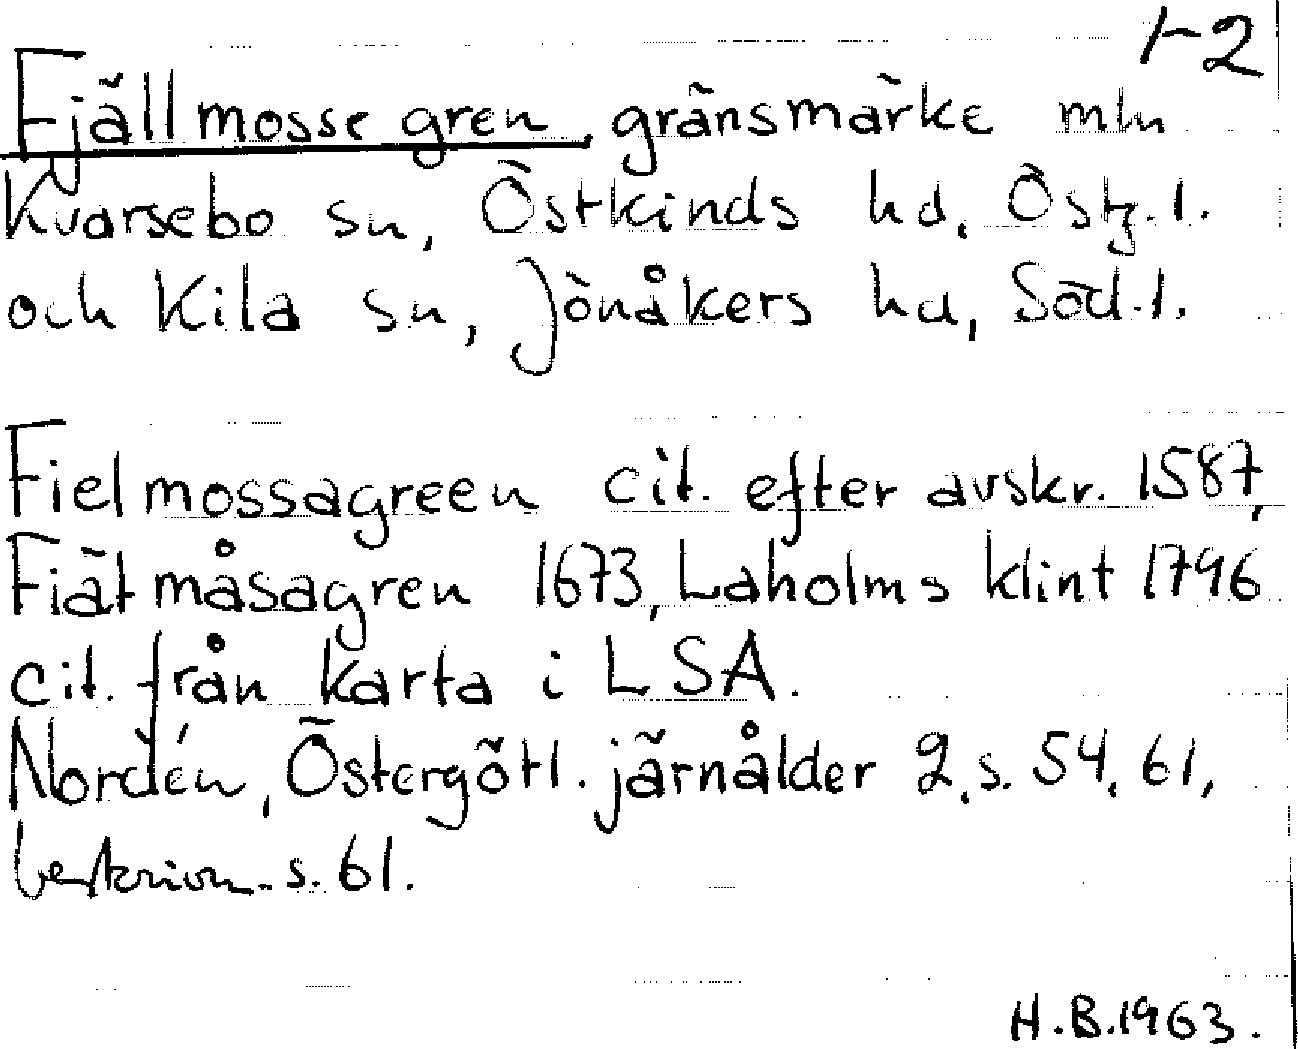 1-2
Fjällmossegren, gränsmärke mln
Kvarsebo sn, Östkinds hd, Östg.l.
och Kila sn, Jönåkers hd, Söd.l.
Fielmossagreen cit. efter avskr. 1587,
Fiätmåsagren 1673, Laholms klint 1796
cit. från karta i LSA.
Nordén, Östergötl. järnålder 2, s. 54, 61,
beskrivn. s. 61.
H.B.1963.